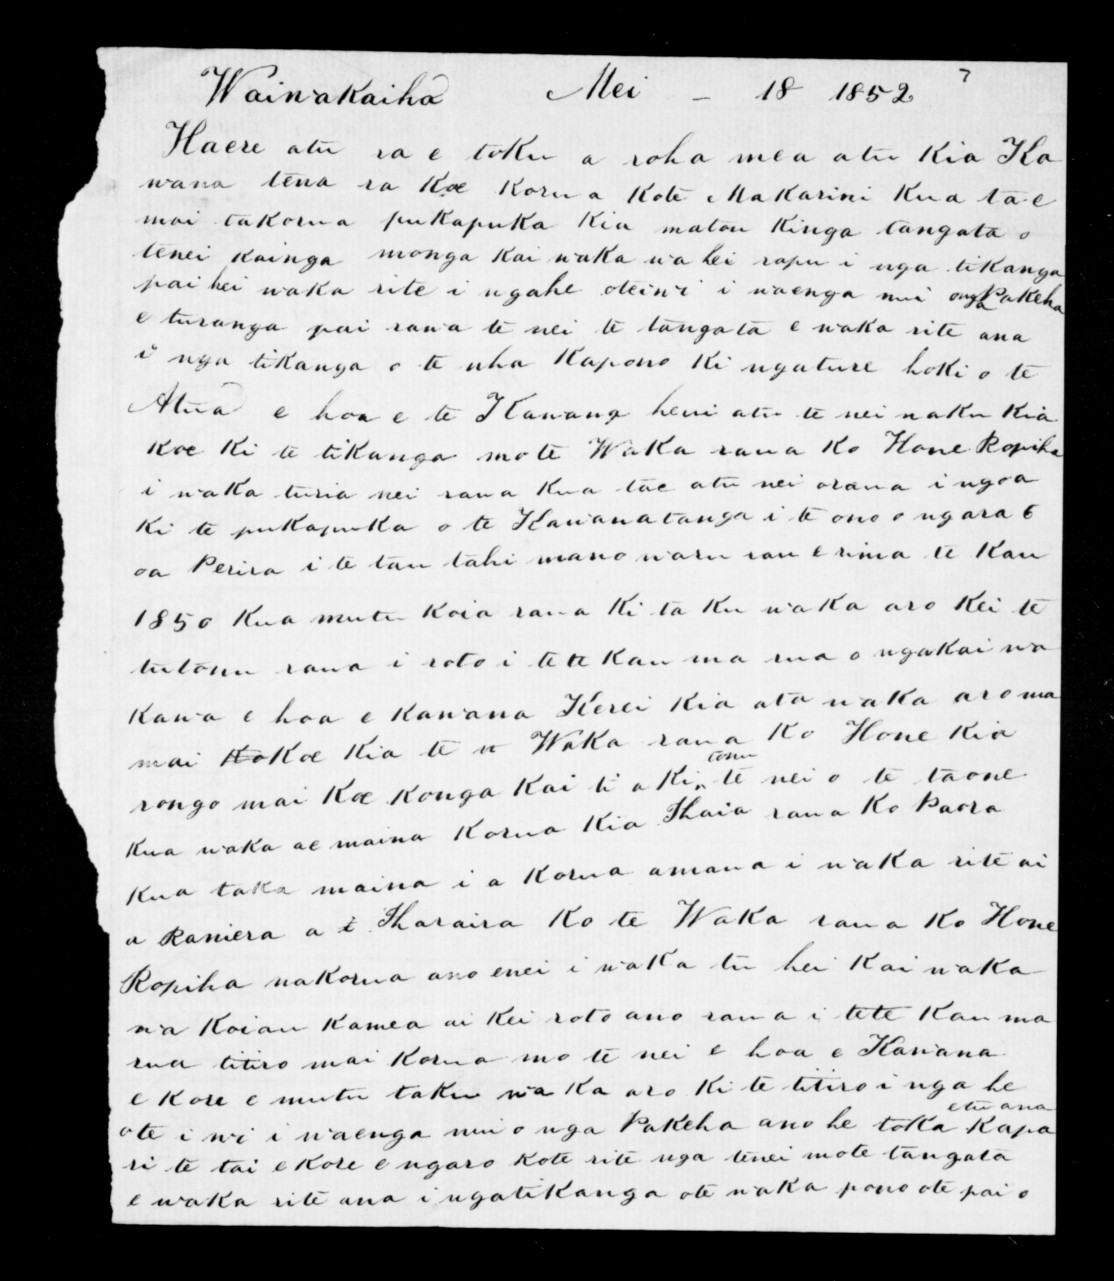 Wainwakaiha Mei - 18 1852 7
Haere atu ra e toku a roha mea atu Kia Ka
wana tena ra Koe Korua Kote Makarini Kua ta e
mai takorua pukapuka Kia matou Kinga tangata o
tenei Kainga monga Kai waka wa hei rapu i nga tikanga
pai hei waka rite i ngahe oteiwi i waenga nui onga Pakeha
e turanga pai rawa te nei te tangata e waka rite ana
i nga tikanga o te wha Kapono Ki ngature hoki o te
Atua e hoa e te Kawana heui atu te nei naku Kia
Koe Ki te tikanga mote Waka raua Ko Hone Ropiha
i waka turia nei raua Kua tae atu nei oraua i ngoa
Ki te pukapuka o te Kawanatanga i te ono o ngara 6
oa Perira i te tau tahi mano waru rau e rima te Kau
1850 Kua mutu Koia raua Ki ta Ku waka aro Kei te
tutonu raua i roto i te te Kau ma rua o ngakai wa
Kawa e hoa e Kawana Kerei Kia ata waka aro ma
mai Ko Koe Kia te w Waka raua Ko Hone Kia
rongo mai Koe Konga Kai ti a Ki tonu te nei o te taone
Kua waka ae maina Korua Kia Ihaia raua Ko Paora
Kua taka maina i a Korua amana i waka rite ai
a Raniera a i Tharaira Ko te Waka raua Ko Hone
Ropiha nakorua ano enei i waka tu hei Kai waka
wa Koiau Kamea ai Kei roto ano raua i tete Kau ma
rua titiro mai Korua mo te nei e hoa e Kawana
e Kore e mutu taku wa Ka aro Ki te titiro i nga he
ote i wi i waenga nui o nga Pakeha ano he toka etu ana Kapa
ri te tai e Kore e ngaro Kote rite nga tenei mote tangata
e waka rite ana i ngatikanga ote waka pono ote pai o